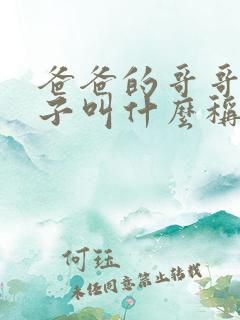 爸爸的哥哥
子叫什麼稱
何珏
未经同意禁止转载